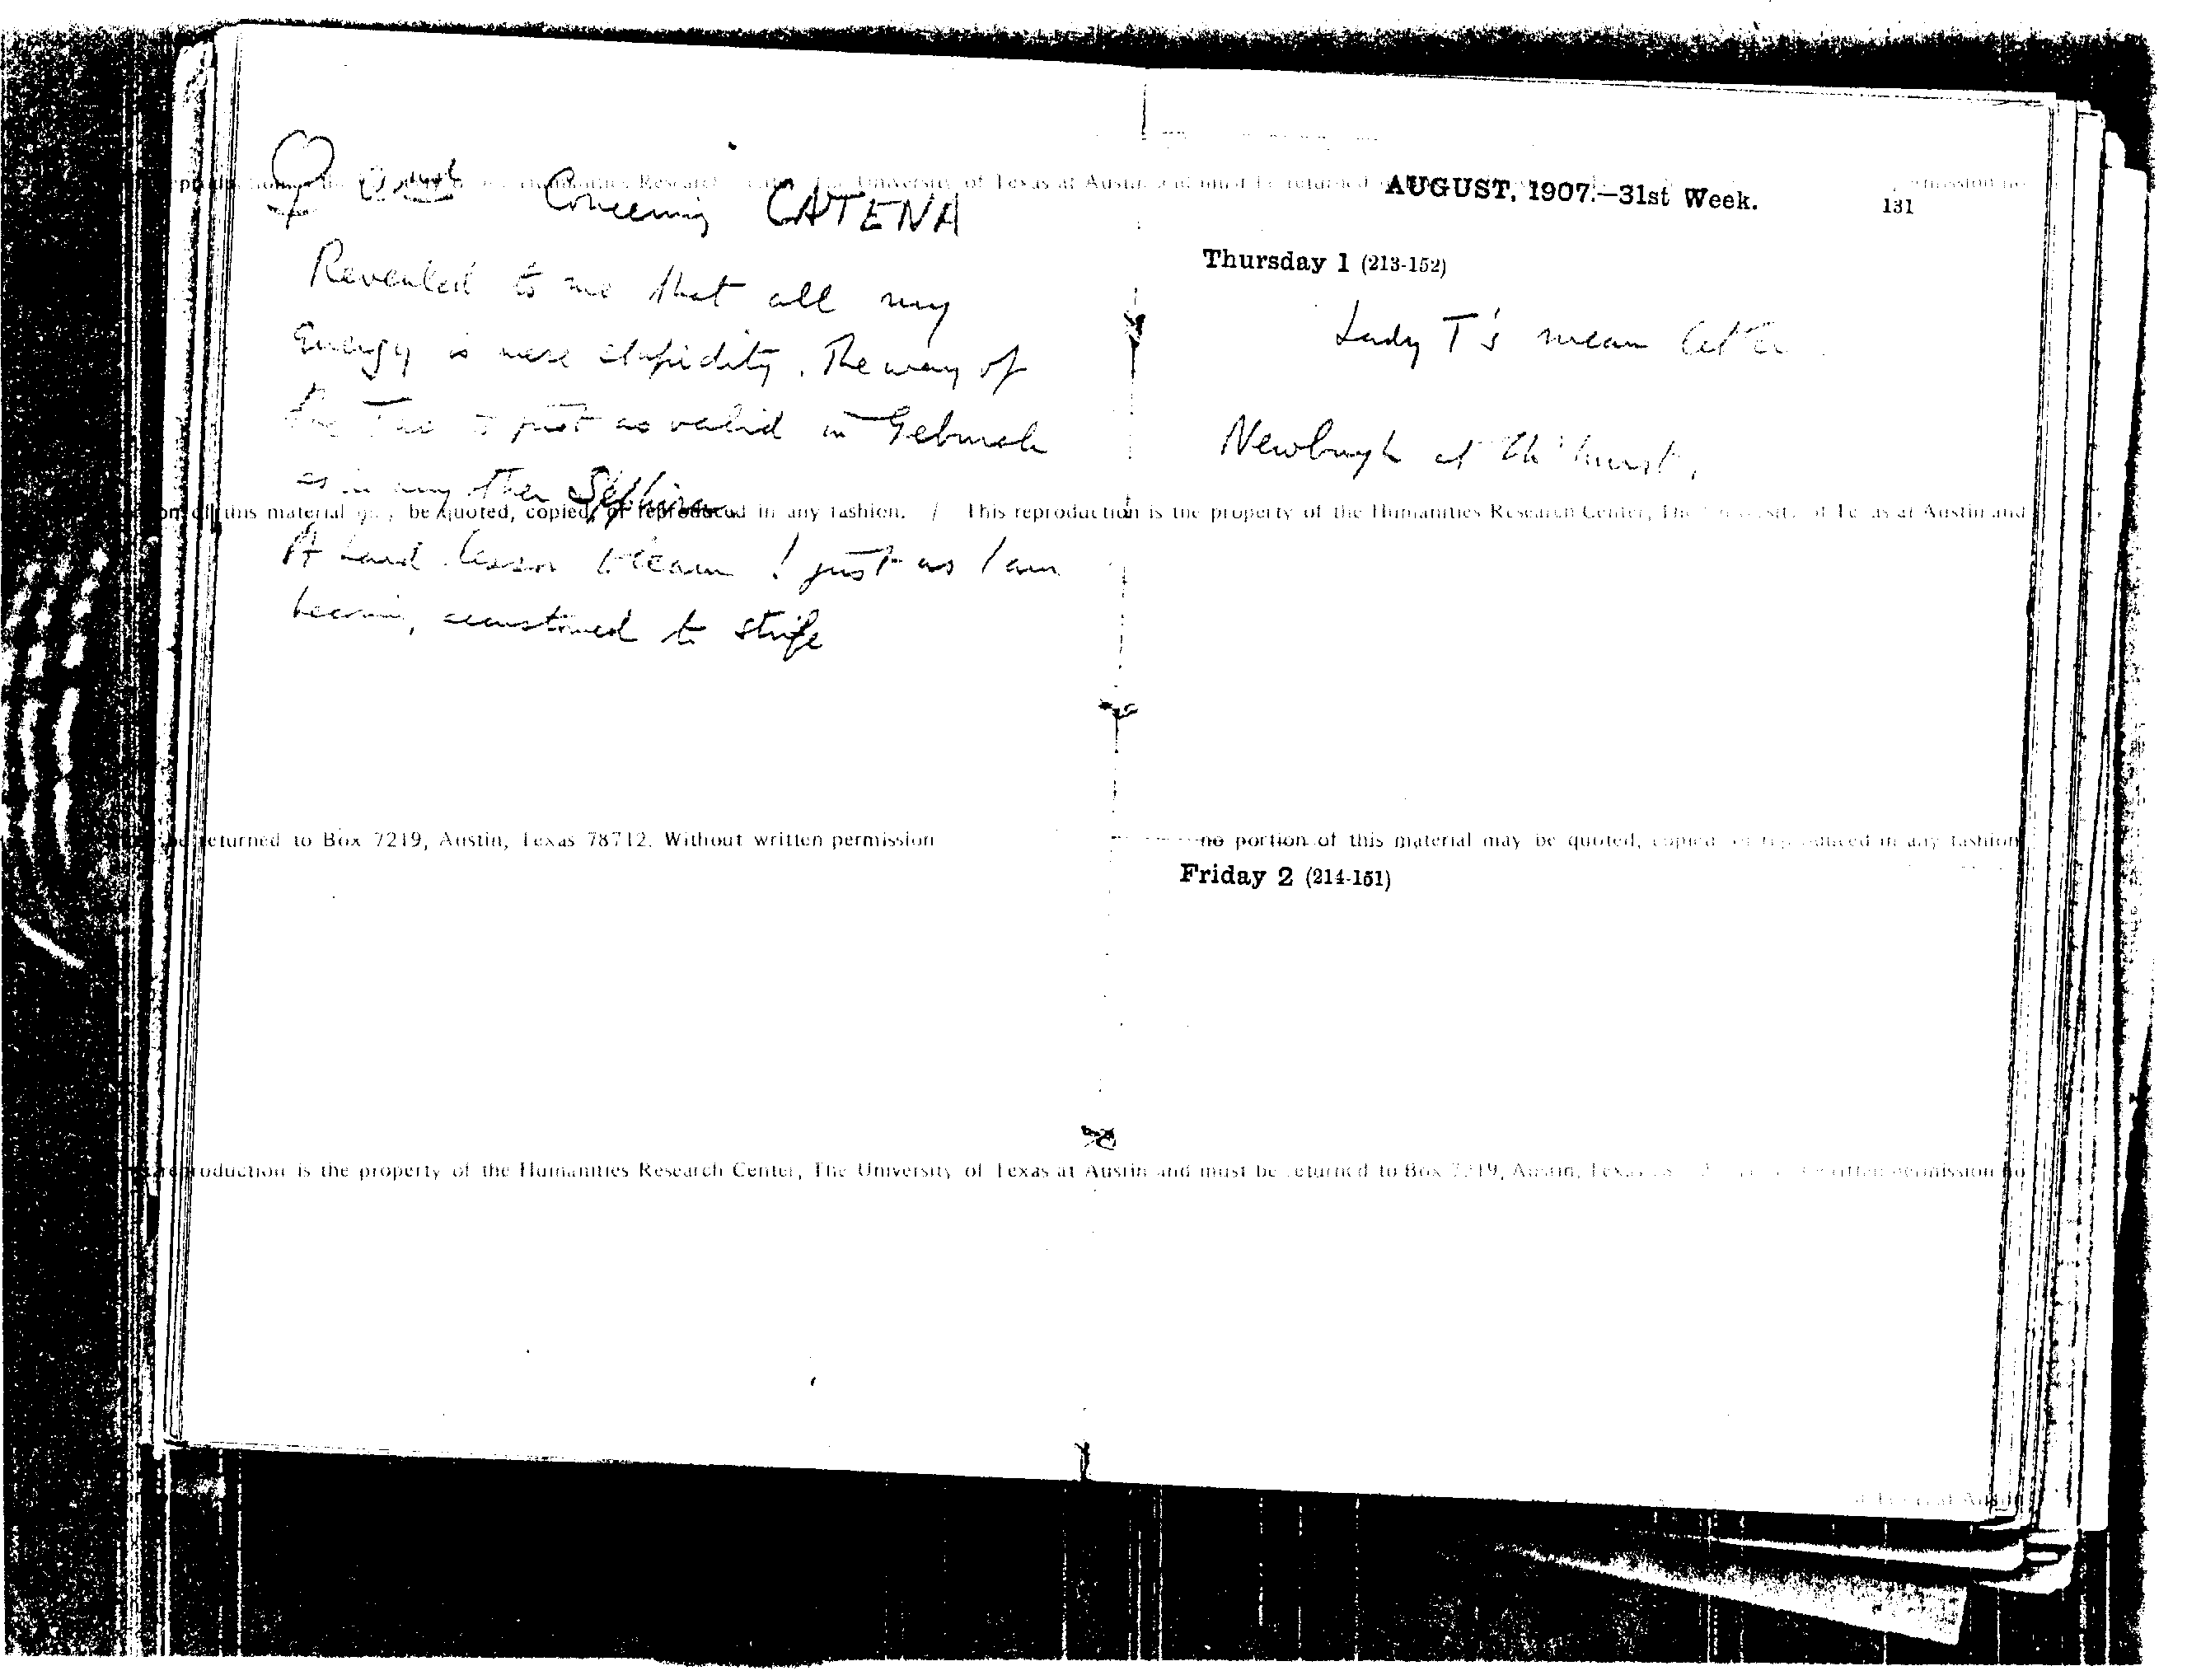 Concerning CATENA
Revealed to me that all my
energy is mere stupidity. The way of
the Tao is just as valid in Geburah
as in any other Sephira
A hard lesson to learn! just as I am
becoming accustomed to strife
AUGUST, 1907.—31st Week. 131
Thursday 1 (213-152)
Lady T's mean letter.
Newburgh at
on of this material may be quoted, copied, or reproduced in any fashion. / This reproduction is the property of the Humanities Research Center, The University of Texas at Austin and
be returned to Box 7219, Austin, Texas 78712. Without written permission no portion of this material may be quoted, copied or reproduced in any fashion
Friday 2 (214-151)
reproduction is the property of the Humanities Research Center, The University of Texas at Austin and must be returned to Box 7219, Austin, Texas written permission no